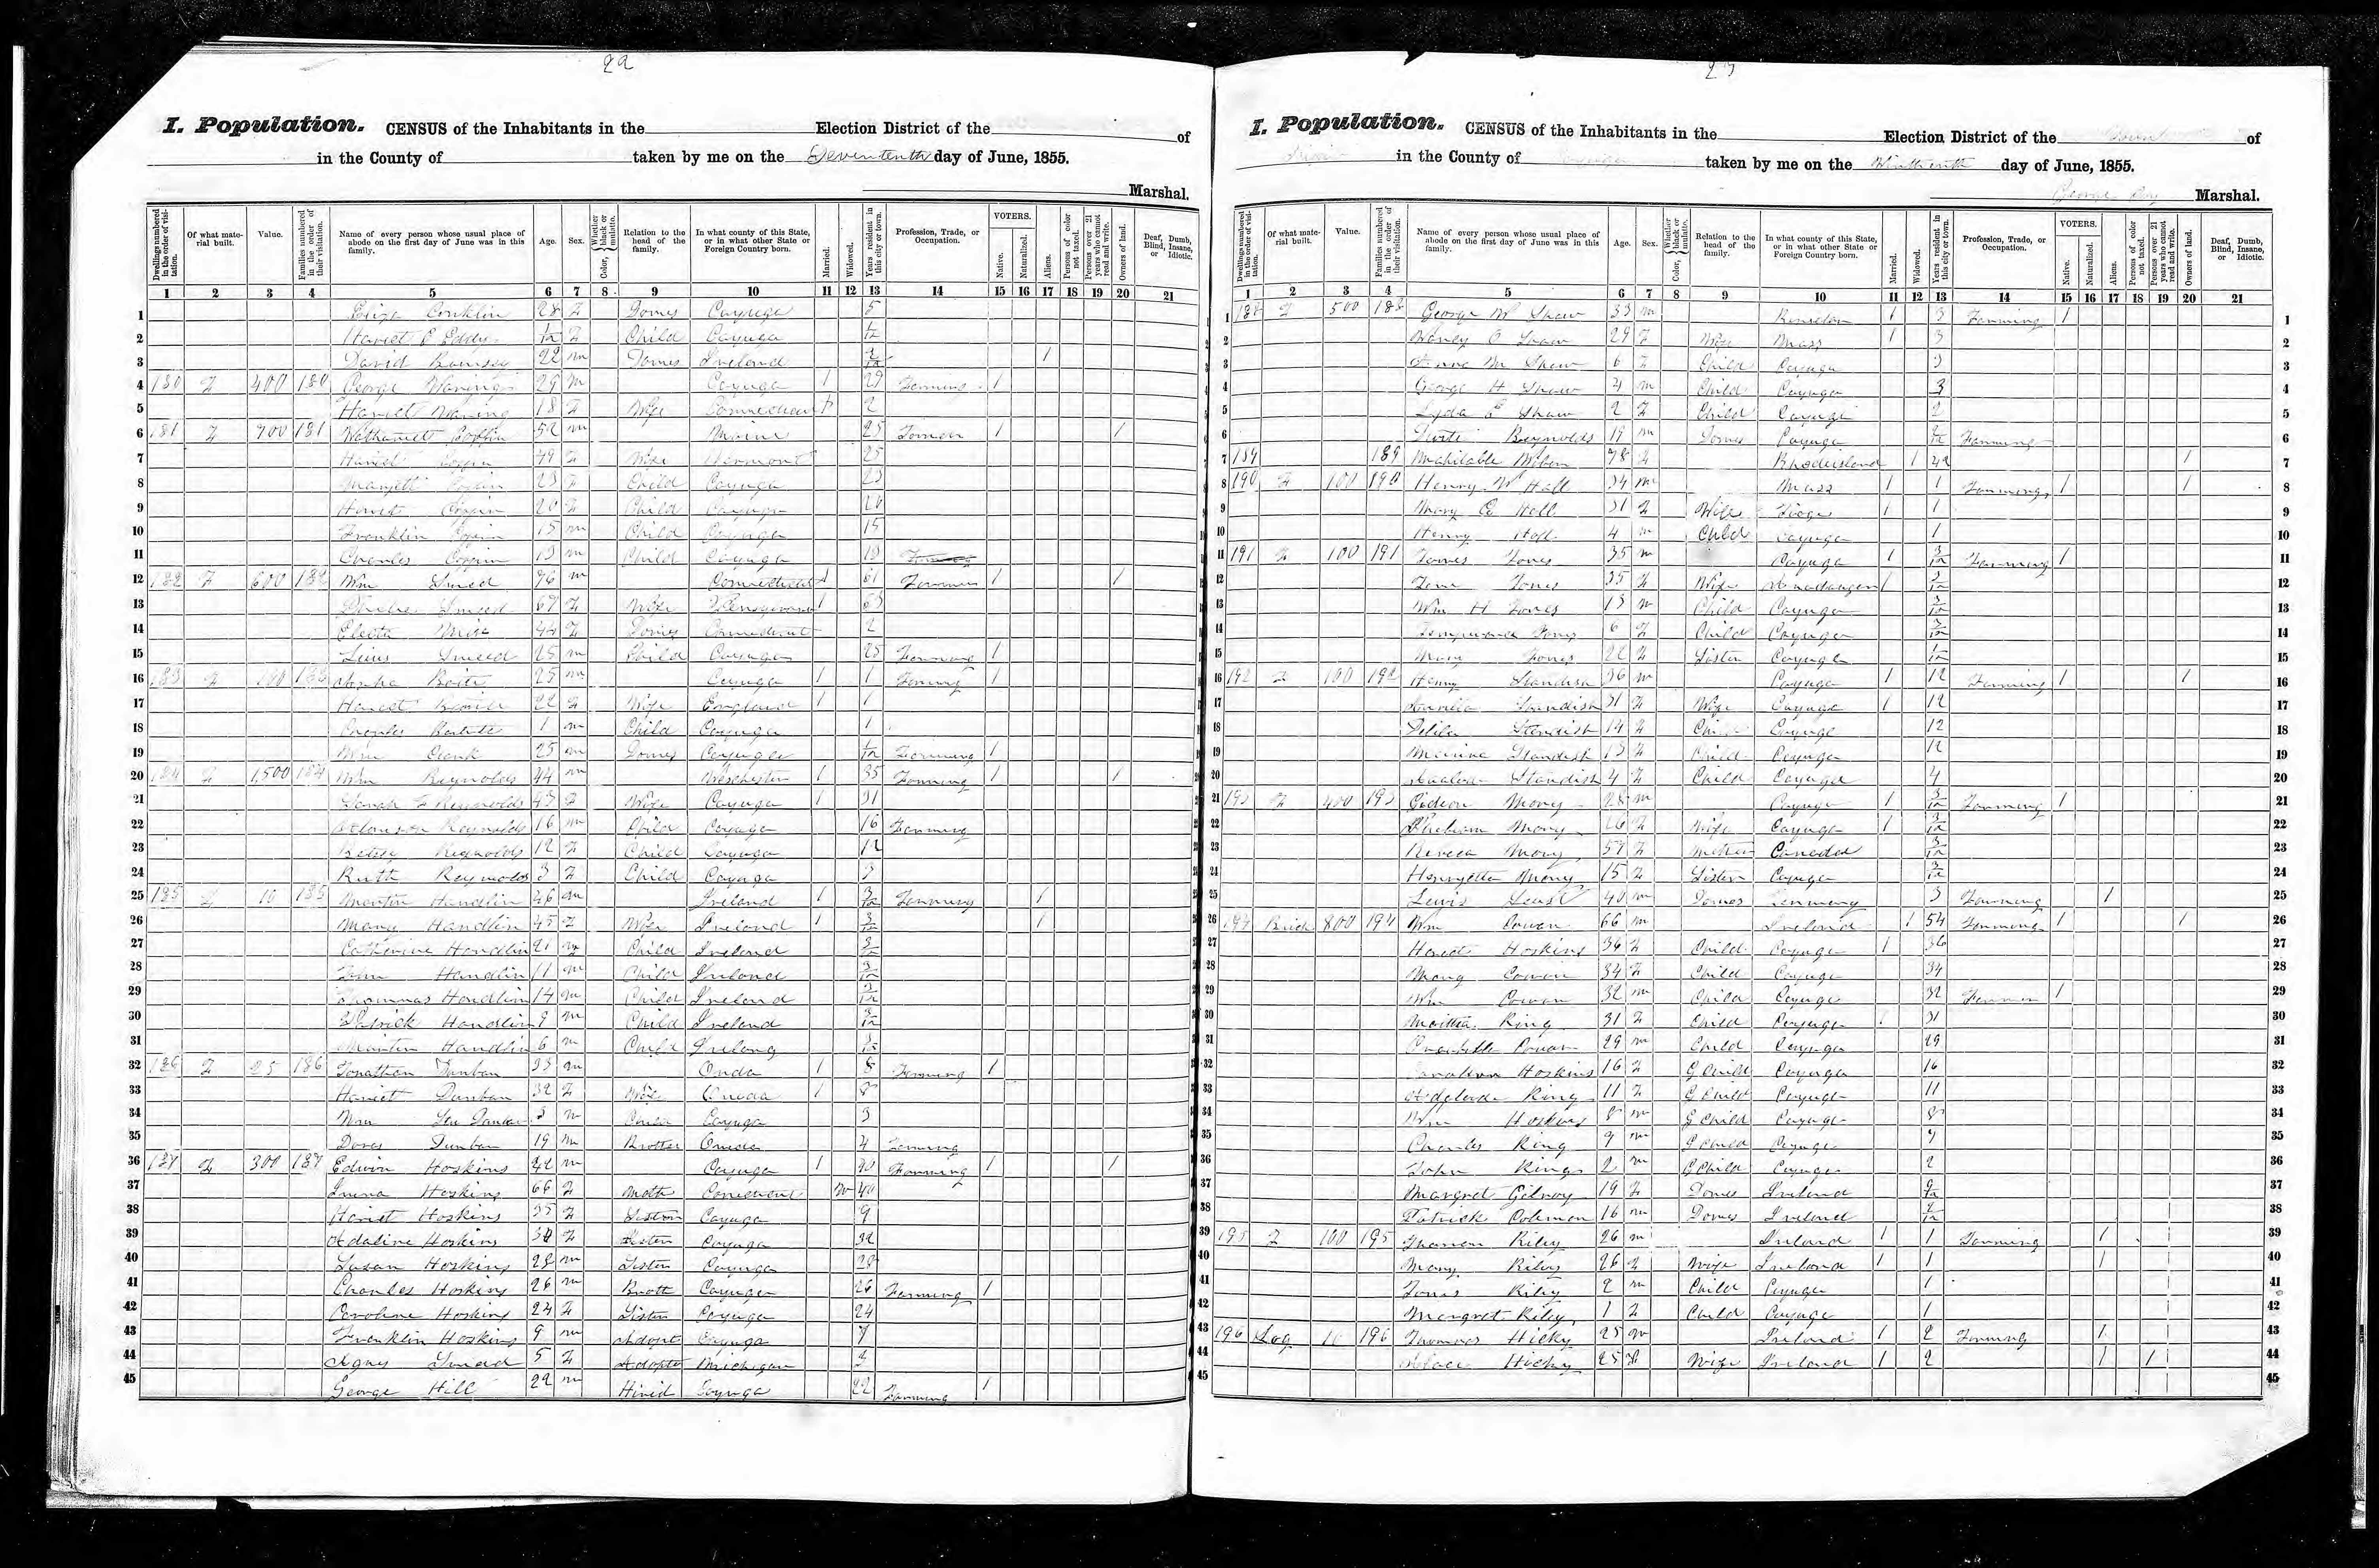 22
I. Population. CENSUS of the Inhabitants in the Election District of the of
in the County of taken by me on the Sevententh day of June, 1855.
Marshal.
Dwellings numbered in the order of visitation.
Of what material built.
Value.
Families numbered in the order of their visitation.
Name of every person whose usual place of abode on the first day of June was in this family.
Age.
Sex.
Color, Whether black or mulatto.
Relation to the head of the family.
In what county of this State, or in what other State or Foreign Country born.
Married.
Widowed.
Years resident in this city or town.
Profession, Trade, or Occupation.
VOTERS.
Native.
Naturalized.
Aliens.
Persons of color not taxed.
Persons over 21 years who cannot read and write.
Owners of land.
Deaf, Dumb, Blind, Insane, or Idiotic.
1 2 3 4 5 6 7 8 9 10 11 12 13 14 15 16 17 18 19 20 21
1 Eliza Conklin 28 F Domes Cayuga 5
2 Hariet Eddy Child Cayuga
3 David 22 m Domes Ireland 1
4 180 F 400 180 George 29 m Cayuga 1 29 Farming 1
5 Hariet Waring 18 F Wife Connecticut 1 2
6 181 F 700 181 Nathaniel Coffin 52 m Maine 25 Farmer 1 1
7 Hariet Coffin 49 F Wife Vermont 25
8 Coffin 23 F Child Cayuga 23
9 Coffin 20 F Child Cayuga 20
10 Franklin Coffin 15 m Child Cayuga 15
11 Charles Coffin 13 m Child Cayuga 13
12 182 F 600 182 Wm Smeed 76 m Connecticut 1 61 Farmer 1 1
13 Smeed 67 F Wife 1 63
14 Electa 44 F Domes Connecticut 2
15 Smeed 25 m Child Cayuga 25 Farming 1
16 183 F 100 183 25 m Cayuga 1 1 Farming 1
17 Hariet 22 F Wife England 1 1
18 Charles 1 m Child Cayuga 1
19 Wm Clark 25 m Domes Cayuga Farming 1
20 184 F 1,500 184 Wm Reynolds 44 m Weschester 1 35 Farming 1 1
21 Sarah Reynolds 43 F Wife Cayuga 1 31
22 Reynolds 16 m Child Cayuga 16 Farming
23 Betsey Reynolds 12 F Child Cayuga 12
24 Ruth Reynolds 3 F Child Cayuga 3
25 185 F 10 185 Martin Handlin 46 m Ireland 1 3/12 Farming 1
26 Mary Handlin 45 F Wife Ireland 1 3/12 1
27 Catherine Handlin 21 Child Ireland 3/12
28 Handlin m Child Ireland 3/12
29 Thommas Handlin 14 m Child Ireland 3/12
30 Patrick Handlin 9 m Child Ireland 3/12
31 Martin Handlin 6 m Child 3/12
32 186 F 25 186 Jonathan Dunban 33 m Onida 1 8 Farming 1
33 Hariet Dunban 32 F Wife Oneida 1 8
34 Wm 3 m Child Cayuga 3
35 Dunban 19 m Brother Onida 4 Farming
36 187 F 300 187 Edwin Hoskins 42 m Cayuga 1 Farming 1 1
37 Hoskins 66 F Moth 40
38 Hariet Hoskins 35 F Sister Cayuga 9
39 Adaline Hoskins F Sister Cayuga 32
40 Susan Hoskins 28 m Sister Cayuga 28
41 Charles Hoskins 26 m Broth Cayuga 26 Farming 1
42 Caroline Hoskins 24 F Sister Cayuga 24
43 Franklin Hoskins 9 m Adopt Cayuga 9
44 Agnes Smead 5 F Adopt Michigan
45 George Hill 22 m Hired Cayuga 22 Farming 1
I. Population. CENSUS of the Inhabitants in the Election District of the Town of
in the County of Cayuga taken by me on the day of June, 1855.
George Marshal.
Dwellings numbered in the order of visitation.
Of what material built.
Value.
Families numbered in the order of their visitation.
Name of every person whose usual place of abode on the first day of June was in this family.
Age.
Sex.
Color, Whether black or mulatto.
Relation to the head of the family.
In what county of this State, or in what other State or Foreign Country born.
Married.
Widowed.
Years resident in this city or town.
Profession, Trade, or Occupation.
VOTERS.
Native.
Naturalized.
Aliens.
Persons of color not taxed.
Persons over 21 years who cannot read and write.
Owners of land.
Deaf, Dumb, Blind, Insane, or Idiotic.
1 2 3 4 5 6 7 8 9 10 11 12 13 14 15 16 17 18 19 20 21
1 188 F 500 188 George W Shaw 33 m 1 3 Farming 1
2 Shaw 29 F Wife Mass 1 3
3 M Shaw 6 F Child Cayuga 3
4 George H Shaw 4 m Child Cayuga 3
5 Lyda E Shaw 2 F Child Cayuga 2
6 Reynolds 19 m Domes Cayuga Farming
7 189 189 Mahitable 78 F Rhodeisland 1 42 1
8 190 F 100 190 Henry W Hall 34 m Mass 1 1 Farming 1 1
9 Mary E Hall 31 F Wife Tioga 1 1
10 Henry Hall 4 m Child Cayuga 1
11 191 F 100 191 James Jones 35 m Cayuga 1 3/12 Farming 1
12 Jane Jones 35 F Wife 1 3/12
13 Wm H Jones 13 m Child Cayuga 3/12
14 Jones 6 F Child Cayuga 3/12
15 Mary Jones 22 F Sister Cayuga
16 192 F 100 192 Henry Standish 36 m Cayuga 1 12 Farming 1 1
17 Standish 31 F Wife Cayuga 1 12
18 Delila Standish 14 F Child Cayuga 12
19 Standish 13 F Child Cayuga 12
20 Standish 4 F Child Cayuga 4
21 193 F 400 193 Gideon Mory 28 m Cayuga 1 3/12 Farming 1
22 Mory 26 F Wife Cayuga 1 3/12
23 Mory 57 F Mother Canada 3/12
24 Henryetta Mory 15 F Sister Cayuga 3/12
25 Lewis 40 m Domes 3 Farming 1
26 194 Brick 800 194 Wm Cowan 66 m Ireland 1 54 Farming 1 1
27 Hariet Hoskins 36 F Child Cayuga 1 36
28 Mary Cowan 34 F Child Cayuga 34
29 Wm Cowan 32 m Child Cayuga 32 Farmer 1
30 Martha King 31 F Child Cayuga 1 31
31 29 m Child Cayuga 29
32 Hoskins 16 F G Child Cayuga 16
33 King 11 F G Child Cayuga 11
34 Wm Hoskins 8 m G Child Cayuga 8
35 Charles King 9 m G Child Cayuga 9
36 John King 2 m G Child Cayuga 2
37 Margret Gilroy 19 F Domes Ireland
38 Patrick Coleman 16 m Domes Ireland
39 195 F 100 195 Riley 26 m Ireland 1 1 Farming 1
40 Mary Riley 26 F Wife Ireland 1 1 1
41 Riley 2 m Child Cayuga 1
42 Margret Riley 1 F Child Cayuga 1
43 196 Log 10 196 Thommas Hicky 25 m Ireland 1 2 Farming 1
44 Hicky 25 F Wife Ireland 1 2 1 1
45